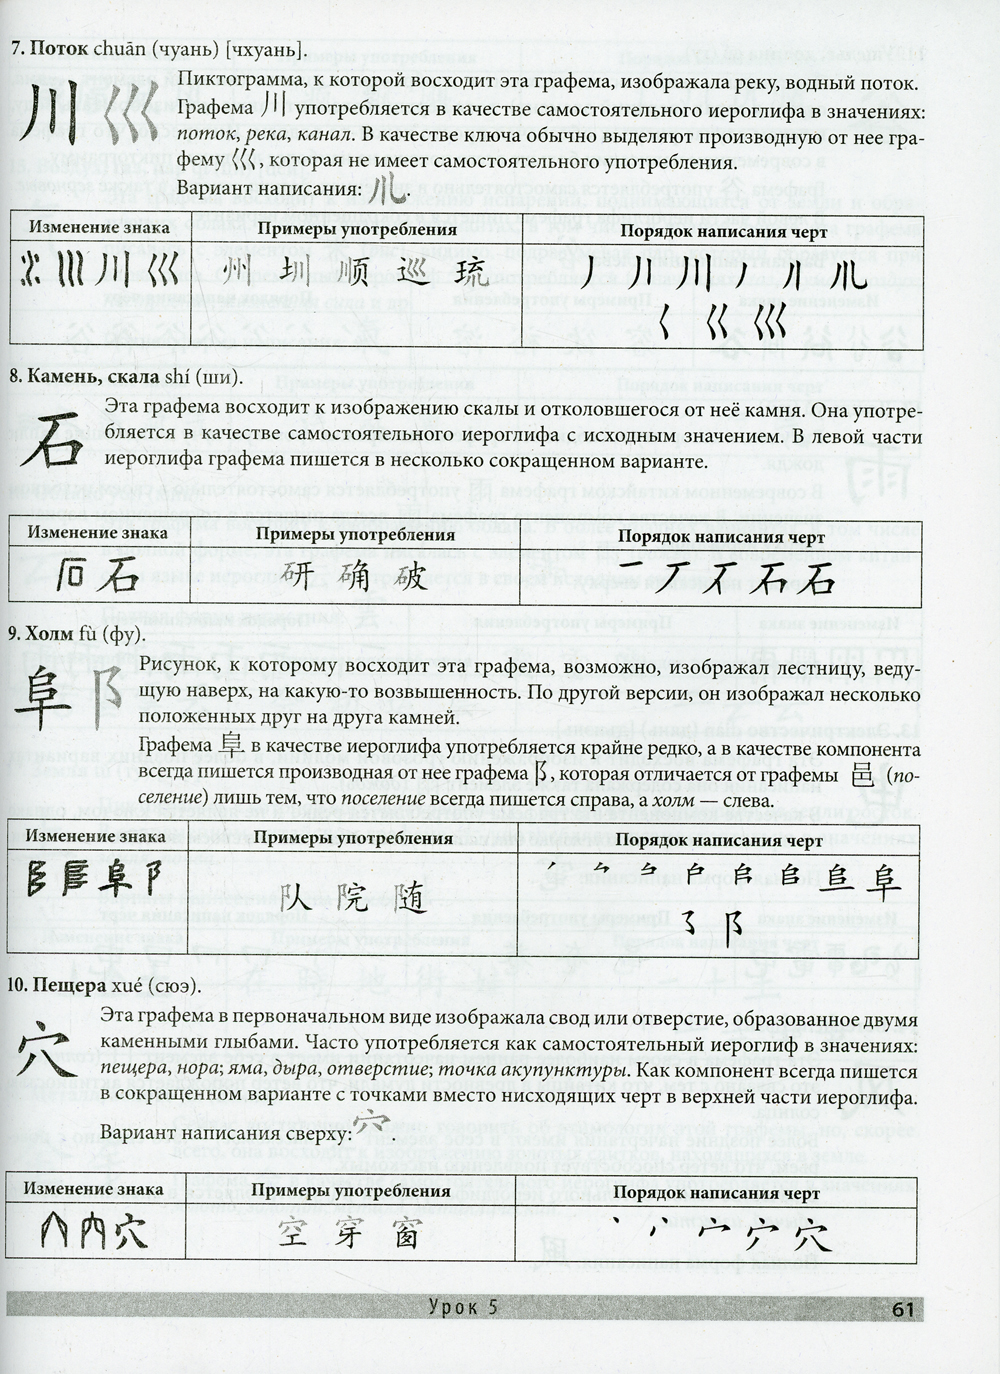 7. Поток chuān (чуань) [чхуань].
川 巛
Пиктограмма, к которой восходит эта графема, изображала реку, водный поток.
Графема 川 употребляется в качестве самостоятельного иероглифа в значениях:
поток, река, канал. В качестве ключа обычно выделяют производную от нее гра-
фему 巛, которая не имеет самостоятельного употребления.
Вариант написания:
Изменение знака Примеры употребления Порядок написания черт
川 巛 州 圳 顺 巡 琉
8. Камень, скала shí (ши).
石
Эта графема восходит к изображению скалы и отколовшегося от неё камня. Она употре-
бляется в качестве самостоятельного иероглифа с исходным значением. В левой части
иероглифа графема пишется в несколько сокращенном варианте.
Изменение знака Примеры употребления Порядок написания черт
石 研 确 破 一 丆 石 石
9. Холм fù (фу).
阜 阝
Рисунок, к которому восходит эта графема, возможно, изображал лестницу, веду-
щую наверх, на какую-то возвышенность. По другой версии, он изображал несколько
положенных друг на друга камней.
Графема 阜 в качестве иероглифа употребляется крайне редко, а в качестве компонента
всегда пишется производная от нее графема 阝, которая отличается от графемы 邑 (по-
селение) лишь тем, что поселение всегда пишется справа, а холм — слева.
Изменение знака Примеры употребления Порядок написания черт
阜 阝 队 院 随 阜
阝
10. Пещера xué (сюэ).
穴
Эта графема в первоначальном виде изображала свод или отверстие, образованное двумя
каменными глыбами. Часто употребляется как самостоятельный иероглиф в значениях:
пещера, нора; яма, дыра, отверстие; точка акупунктуры. Как компонент всегда пишется
в сокращенном варианте с точками вместо нисходящих черт в верхней части иероглифа.
Вариант написания сверху:
Изменение знака Примеры употребления Порядок написания черт
穴 空 穿 窗 穴
Урок 5 61